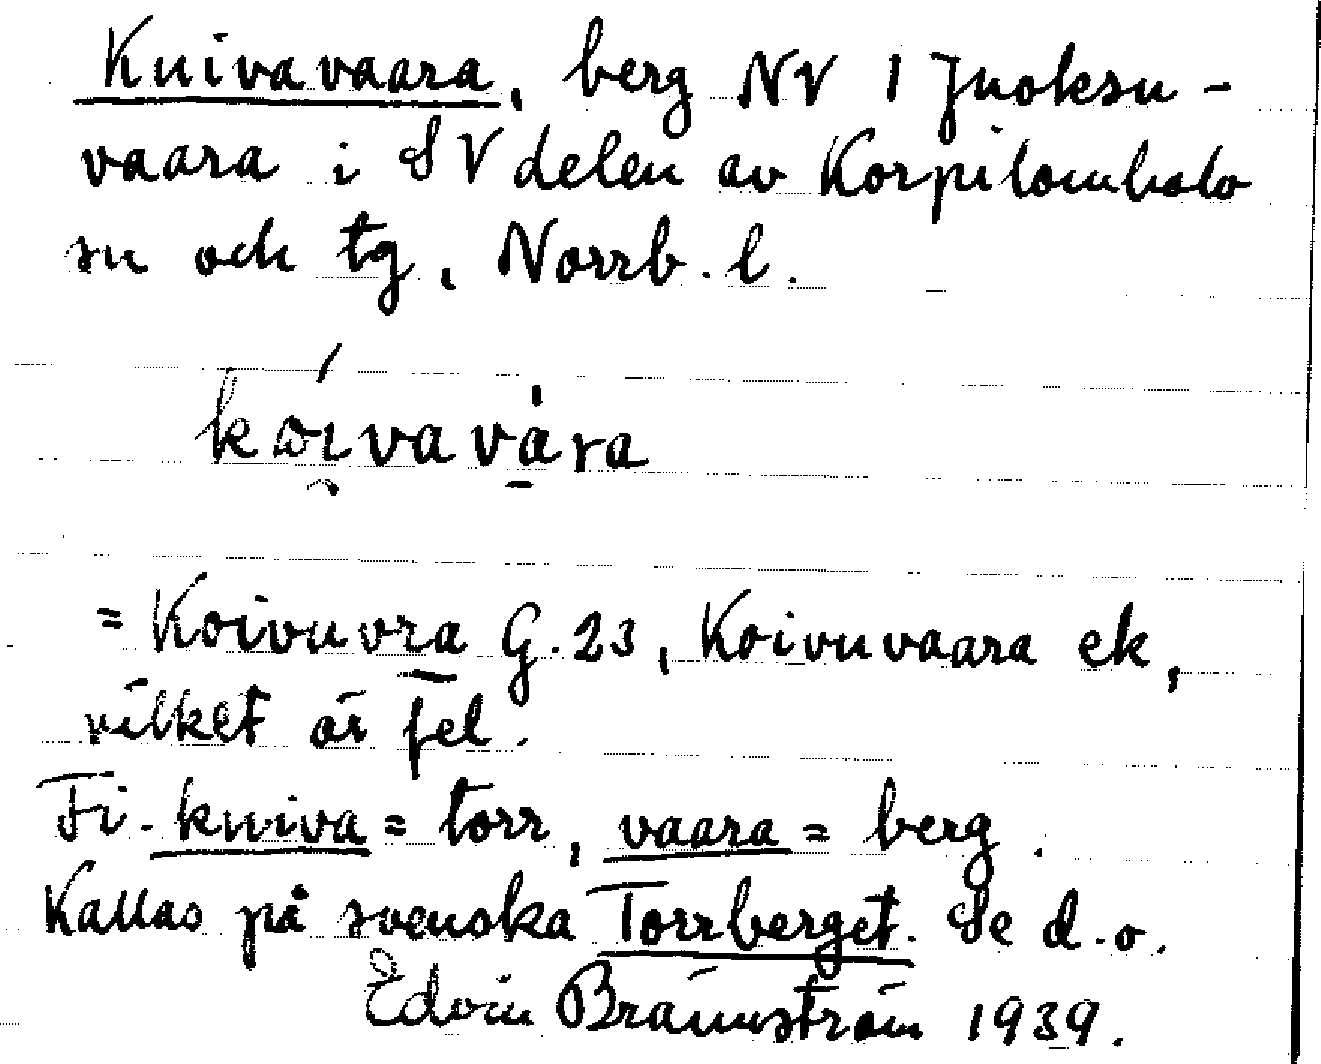 Kuivavaara, berg NV 1 Juoksu-
vaara i SV delen av Korpilombolo
sn och tg, Norrb. l.
kάɪvavàra
= Koivuvra G. 23, Koivuvaara ek,
vilket är fel.
Fi. kuiva = torr, vaara = berg.
Kallas på svenska Torrberget. Se d. o.
Edvin Brännström 1939.